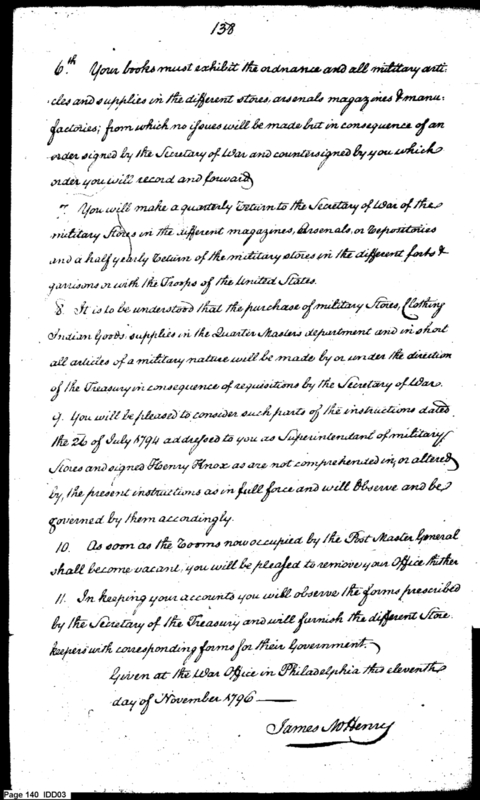 138
6.th Your books must exhibit the ordnance and all military arti-
cles and supplies in the different stores, arsenals magazines & manu-
factories; from which no issues will be made but in consequence of an
order signed by the Secretary of War and countersigned by you which
order you will record and forward
7. You will make a quarterly return to the Secretary of War of the
military Stores in the different magazines, Arsenals, or repositories
and a half yearly return of the military stores in the different forts &
garrisons or with the Troops of the United States.
8. It is to be understood that the purchase of military Stores, Clothing
Indian Goods supplies in the Quarter Masters department and in short
all articles of a military nature will be made by or under the direction
of the Treasury in consequence of requisitions by the Secretary of War.
9. You will be pleased to consider such parts of the instructions dated
the 26 of July 1794 addressed to you as Superintendant of military
Stores and signed Henry Knox as are not comprehended in, or altered
by, the present instructions as in full force and will Observe and be
governed by them accordingly.
10. As soon as the rooms now occupied by the Post Master General
shall become vacant, you will be pleased to remove your Office thither
11. In keeping your accounts you will observe the forms prescribed
by the Secretary of the Treasury and will furnish the different Store
keepers with corresponding forms for their Government.
Given at the War Office in Philadelphia this eleventh
day of November 1796
James McHenry
Page 140 IDD03